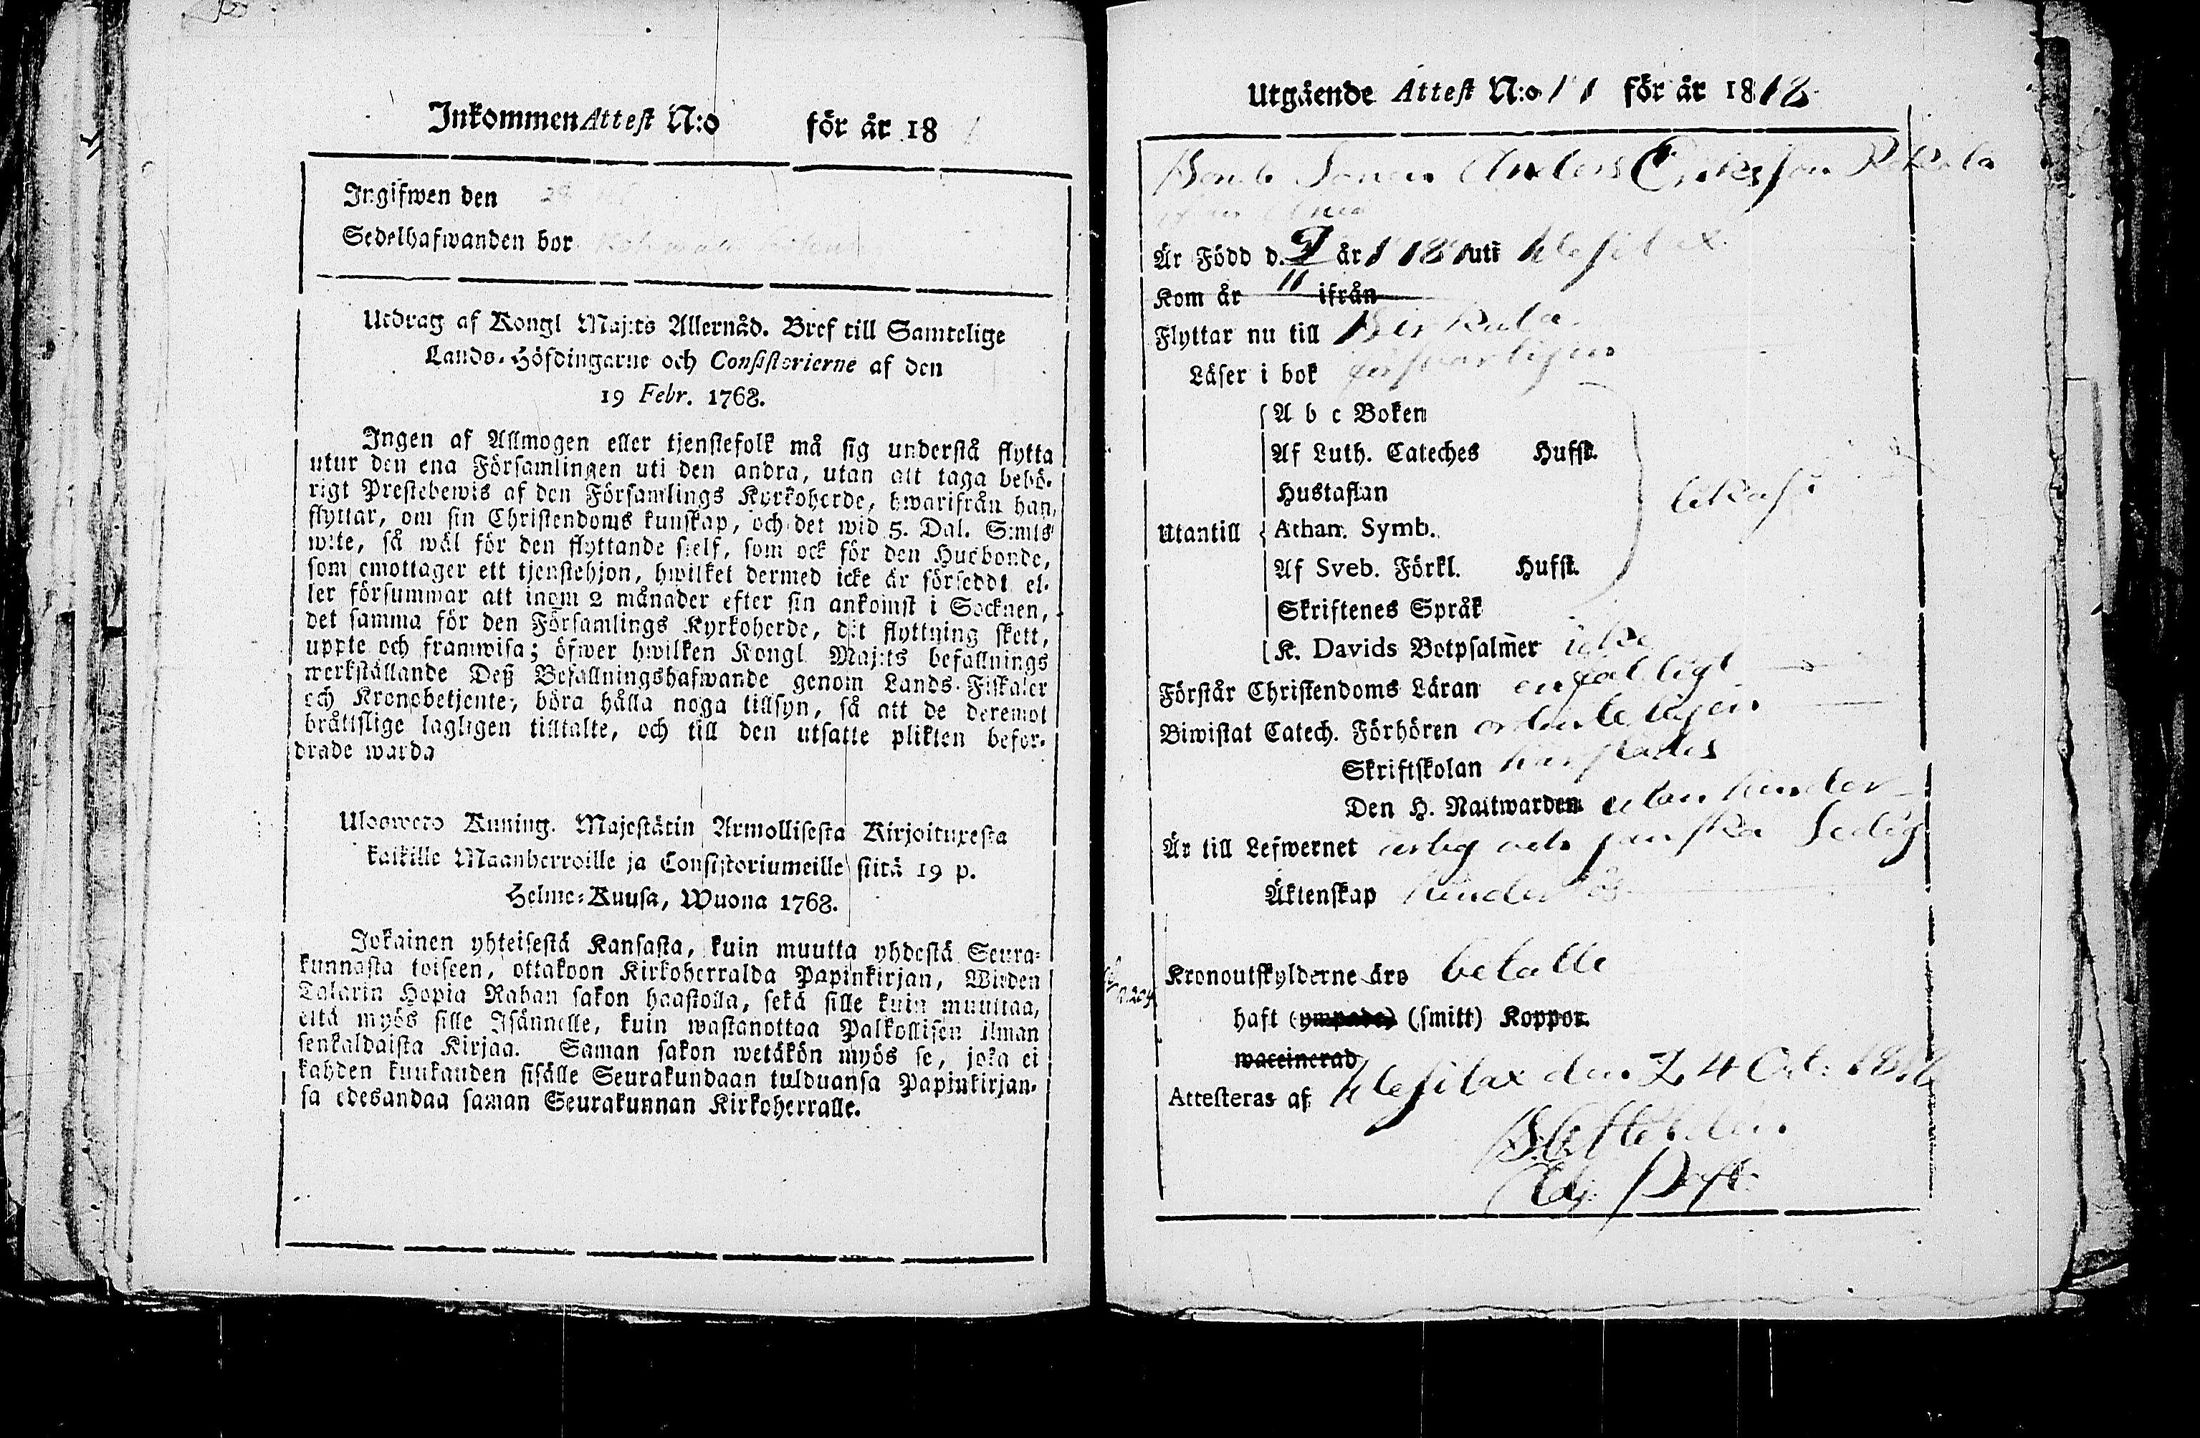 Inkommen Attest N:o för år 18
Ingifwen den 28
Sedelhafwanden bor
Utdrag af Kongl Maj:ts Allernåd. Bref till Samtelige
Lands-Höfdingarne och Consistorierne af den
19 Febr. 1768.
Ingen af Allmogen eller tjenstefolk må sig understå flytta
utur den ena Församlingen uti den andra, utan att taga behö-
rigt Prestebewis af den Församlings Kyrkoherde, hwarifrån han
flyttar, om sin Christendoms kunskap, och det wid 5. Dal. S:mts
wite, så wäl för den flyttande sjelf, som ock för den Husbonde,
som emottager ett tjenstehjon, hwilket dermed icke är försedt el-
ler försummar att inom 2 månader efter sin ankomst i Socknen,
det samma för den Församlings Kyrkoherde, dit flyttning skett,
uppte och framwisa; öfwer hwilken Kongl Maj:ts befallnings
werkställande Deß Befallningshafwande genom Lands-Fiskaler
och Kronobetjente, böra hålla noga tillsyn, så att de deremot
bråttslige lagligen tilltalte, och till den utsatte plikten befor-
drade warda
Uloswero Kuning. Majestätin Armollisesta Kirjoituxesta
kaikille Maanherroille ja Consistoriumeille siitä 19 p.
Helme-Kuusa, Wuona 1768.
Jokainen yhteisestä Kansasta, kuin muutta yhdestä Seura-
kunnasta toiseen, ottakoon Kirkoherralda Papinkirjan, Wiiden
Talarin Hopia Rahan sakon haastolla, sekä sille kuin muuttaa,
että myös sille Isännelle, kuin wastanottaa Palkollisen ilman
senkaldaista Kirjaa. Saman sakon wetäkön myös se, joka ei
kahden kuukauden sisälle Seurakundaan tulduansa Papinkirjan-
sa edesandaa saman Seurakunnan Kirkoherralle.
Utgående Attest N:o 11 för år 1818
Bonde Sonen Anders Ericsson
Är Född d. år uti
Kom år " ifrån
Flyttar nu till Birkala
Läser i bok försvarligen
A b c Boken
Af Luth. Cateches Hufst.
Hustaflan
Utantill Athan. Symb.
Af Sveb. Förkl. Hufst.
likaså
Skriftenes Språk
K. Davids Botpsalm̄er icke
Förstår Christendoms Läran enfaldigt
Biwistat Catech. Förhören ordenteligen
Skriftskolan
Den H. Nattwarden utan hinder
Är till Lefwernet ärlig och ganska Sedig
Äktenskap hinderlös
Kronoutskylderne äro betalte
haft (ympade) (smitt) Koppor.
waccinerad
Attesteras af den 24 Oct. 1818